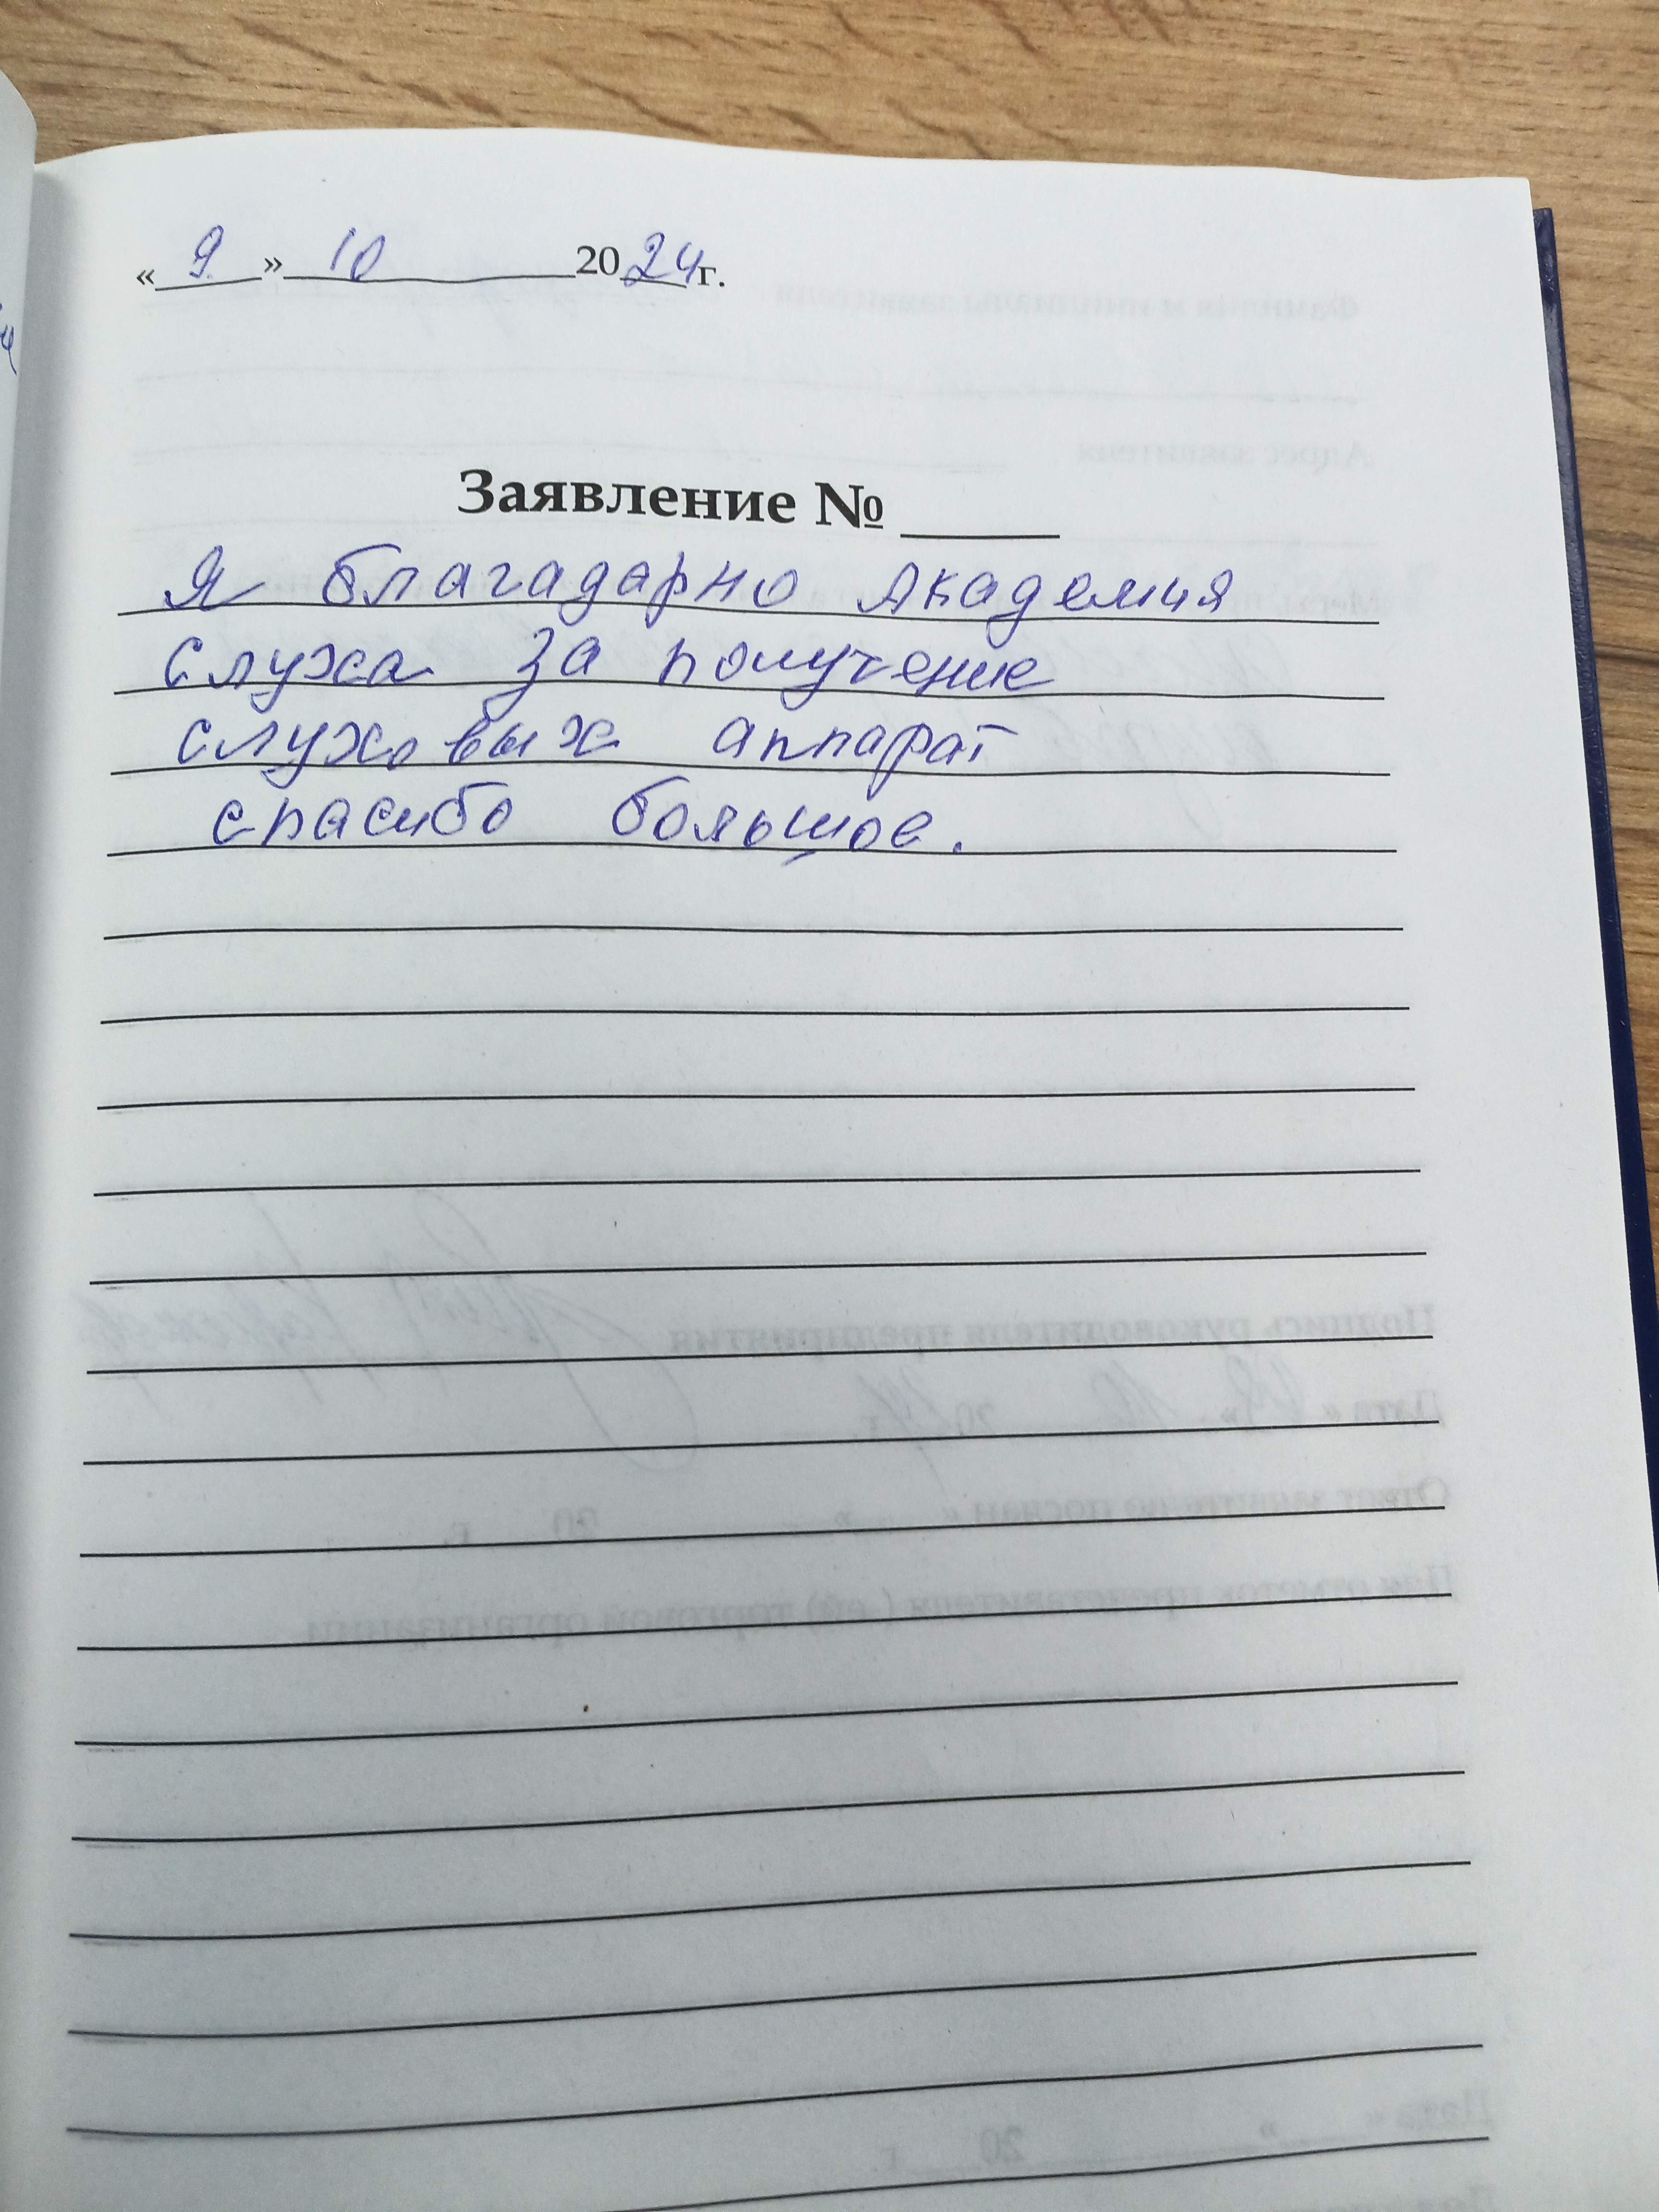 « 9. » 10 2024г.
Заявление № ____
Я благадарно Академия
слуха за получение
слуховых аппарат
спасибо большое.